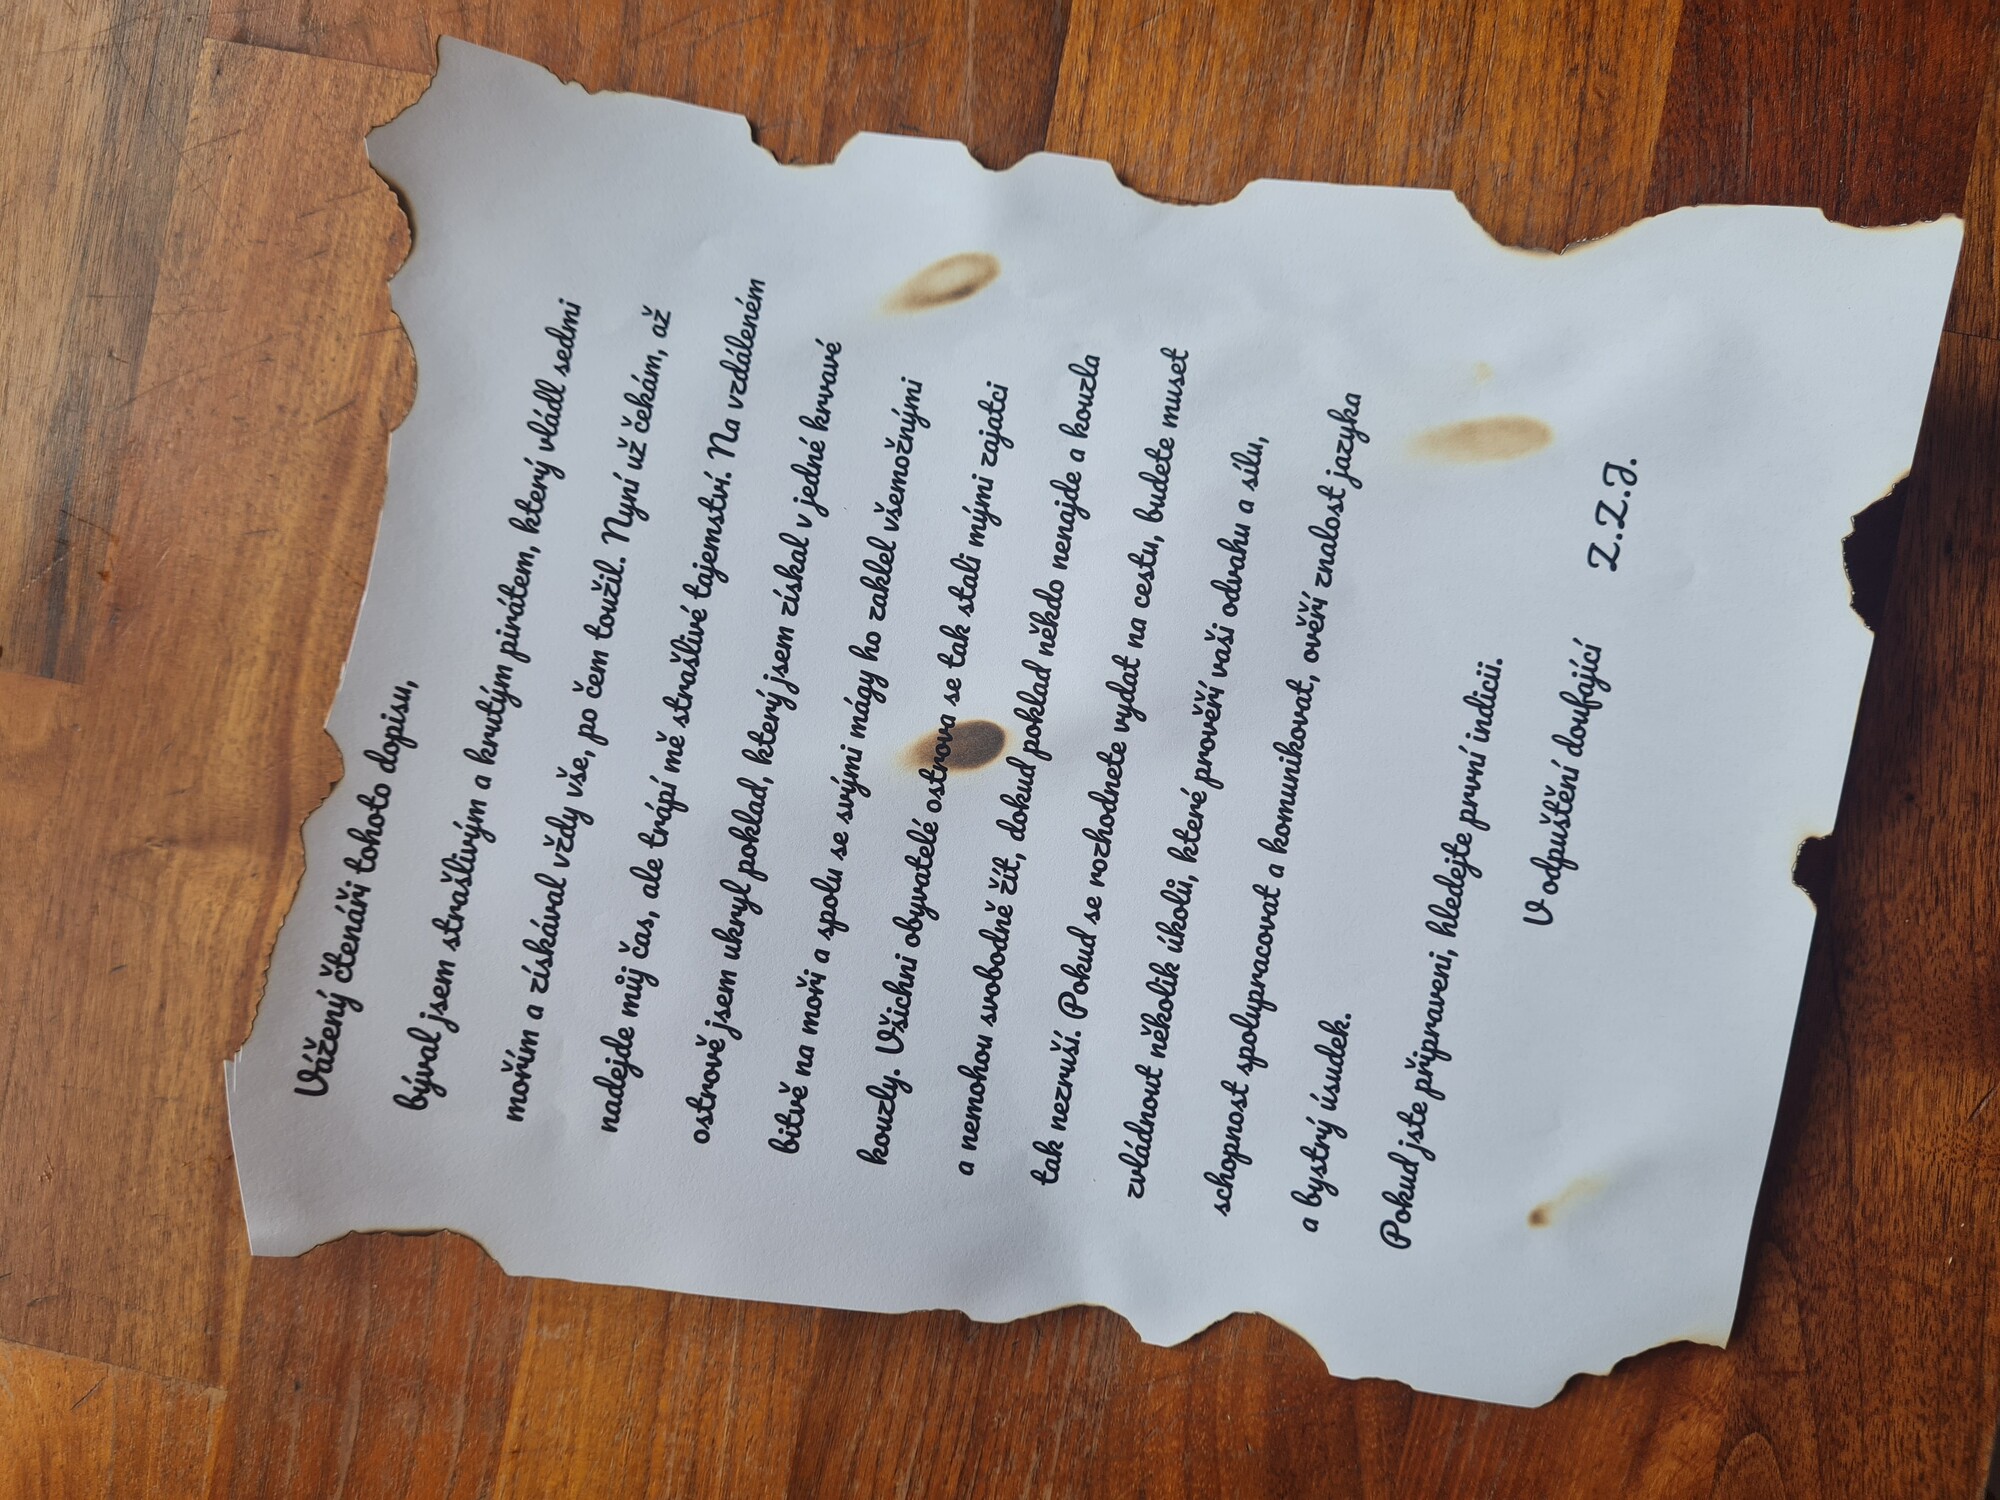 Vážený čtenáři tohoto dopisu,
býval jsem strašlivým a krutým pirátem, který vládl sedmi
mořím a získával vždy vše, po čem toužil. Nyní už čekám, až
nadejde můj čas, ale trápí mě strašlivé tajemství. Na vzdáleném
ostrově jsem ukryl poklad, který jsem získal v jedné krvavé
bitvě na moři a spolu se svými mágy ho zaklel všemocnými
kouzly. Všichni obyvatelé ostrova se tak stali mými zajatci
a nemohou svobodně žít, dokud poklad někdo nenajde a kouzla
tak nezruší. Pokud se rozhodnete vydat na cestu, budete muset
zvládnout několik úkolů, které prověří vaši odvahu a sílu,
schopnost spolupracovat a komunikovat, ověří znalost jazyka
a bystrý úsudek.
Pokud jste připraveni, hledejte první indicii.
V odpuštění doufající Z.Z.J.